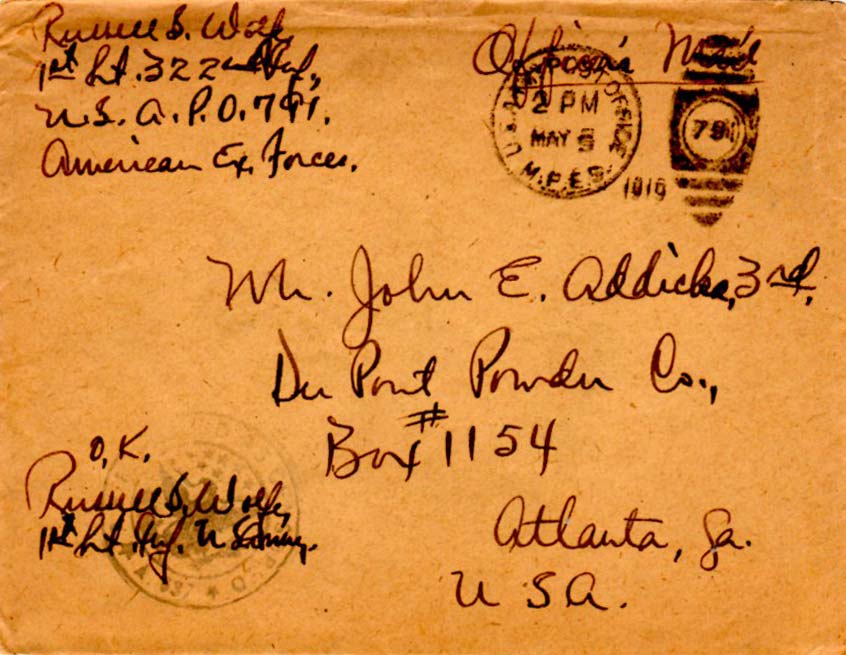 Russell S. Wolfe,
1st Lt. 322nd Inf.,
U.S. A.P.O. 791.
American Ex. Forces.
Officer's Mail
U.S. ARMY POST OFFICE
2 PM
MAY 5
M.P.E.S.
1919
791
Mr. John E. Addicks, 3rd,
Du Pont Powder Co.,
Box #1154
Atlanta, Ga.
U S A.
O.K.
Russell S. Wolfe,
1st Lt. Inf. U S Army.